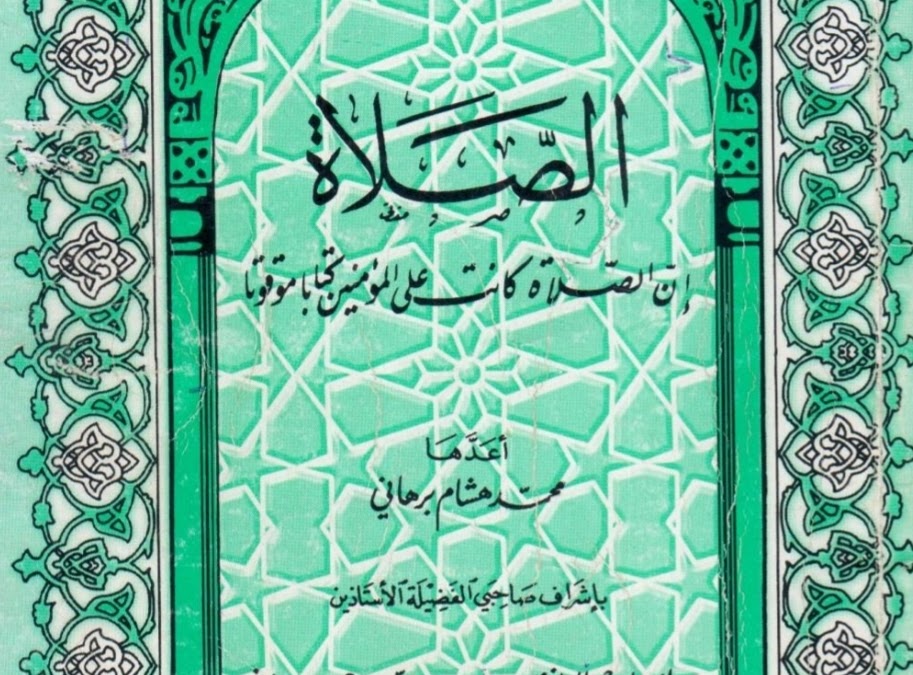 الصّلاة
إنّ الصّلاة كانت على المؤمنين كتابا موقوتا
أعدَّها
محمّد هشام برهاني
بإشراف صاحبي الفضيلة الأستاذين